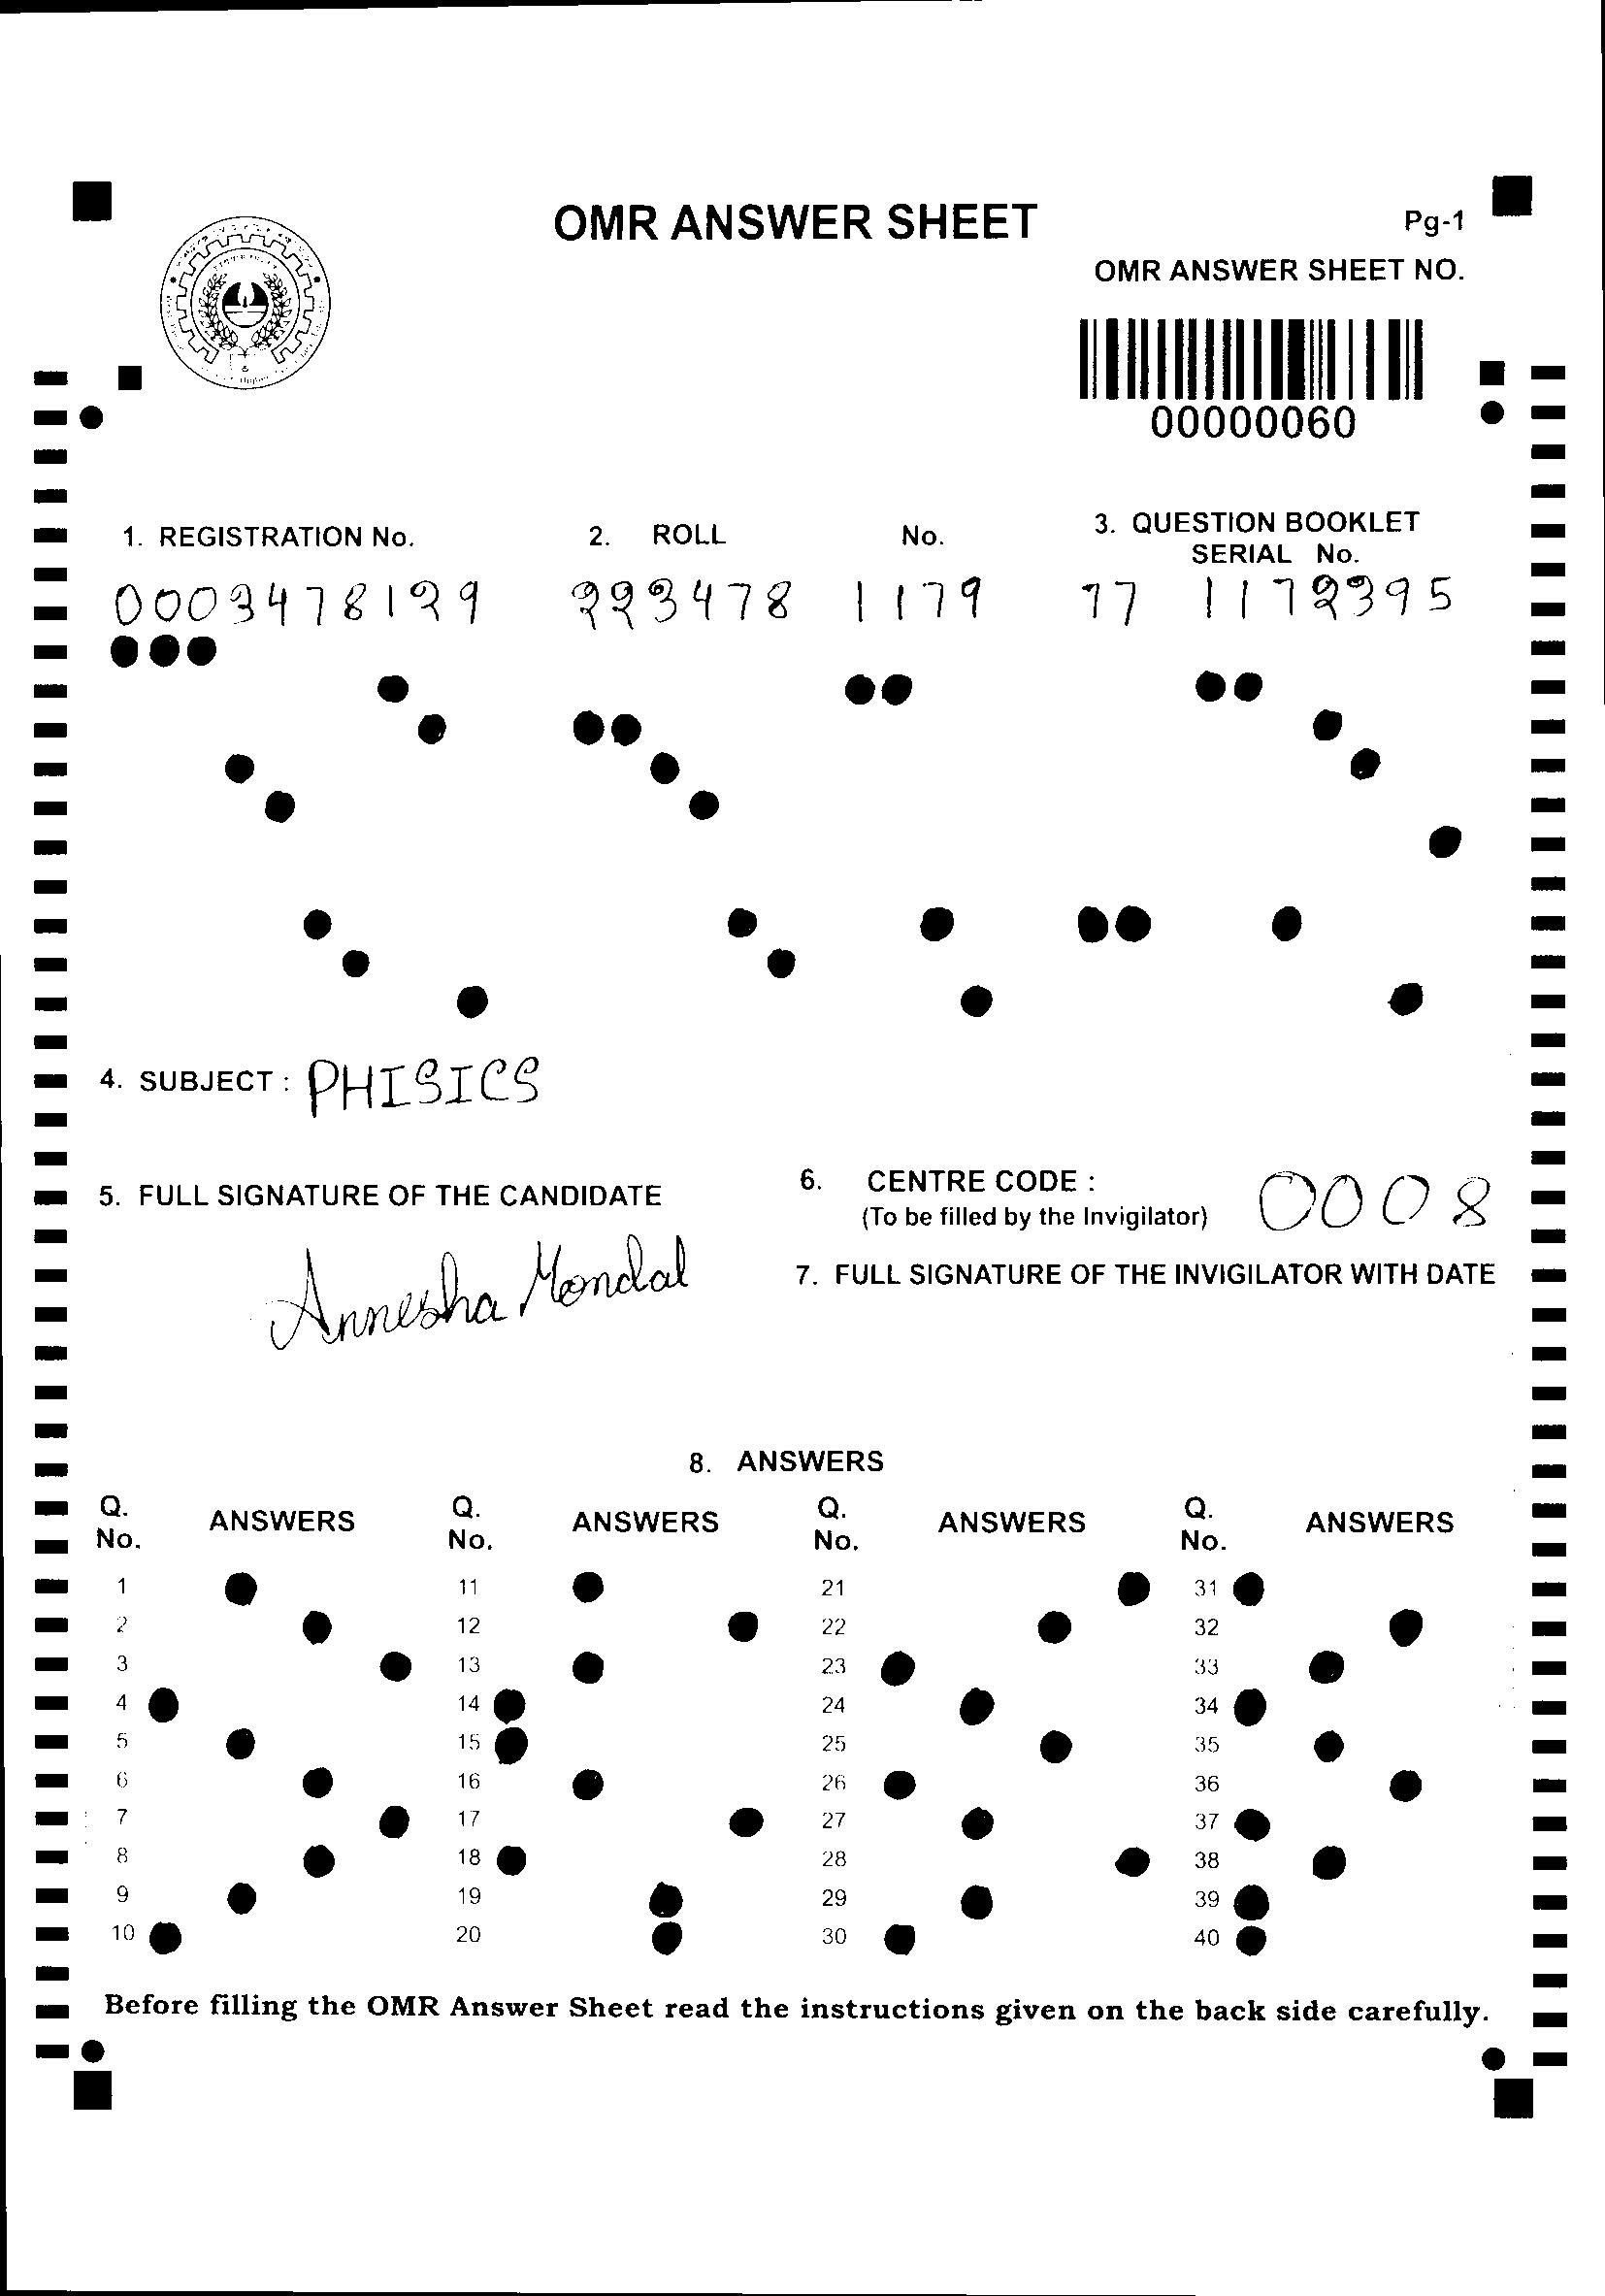 OMR ANSWER SHEET
Pg-1
OMR ANSWER SHEET NO.
00000060
1. REGISTRATION No.
2. ROLL No.
3. QUESTION BOOKLET
SERIAL No.
0003478129
223478 1179
77 1172395
4. SUBJECT : PHISICS
5. FULL SIGNATURE OF THE CANDIDATE
6. CENTRE CODE : 0008
(To be filled by the Invigilator)
Annesha Mondal
7. FULL SIGNATURE OF THE INVIGILATOR WITH DATE
8. ANSWERS
Q. Q. Q. Q.
ANSWERS ANSWERS ANSWERS ANSWERS
No. No. No. No.
1 11 21 31
2 12 22 32
3 13 23 33
4 14 24 34
5 15 25 35
6 16 26 36
7 17 27 37
8 18 28 38
9 19 29 39
10 20 30 40
Before filling the OMR Answer Sheet read the instructions given on the back side carefully.